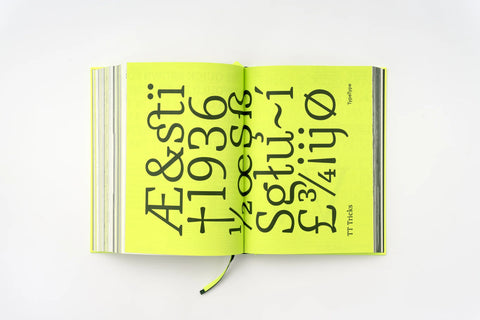 Æ&stï
†1936
½œŞß
Sgłú~í
£¾¡ÿØ
TT Tricks
TypeType